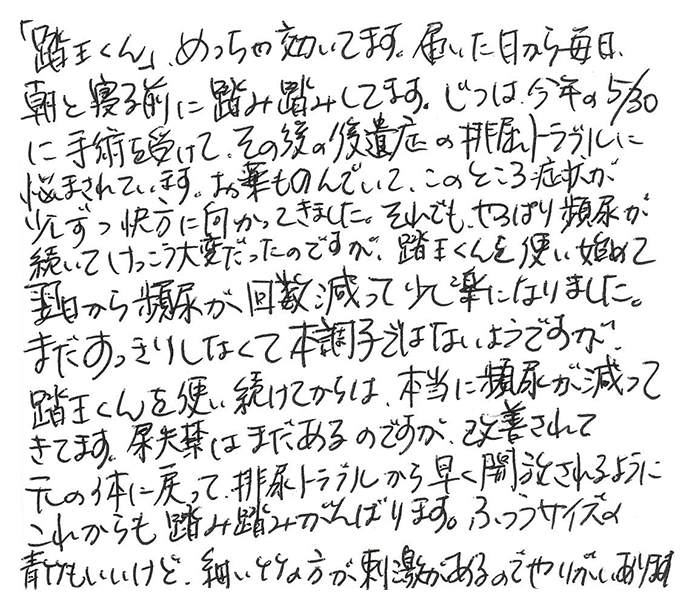 「踏王くん」、めっちゃ効いてます。届いた日から毎日、
朝と寝る前に踏み踏みしてます。じつは、今年の5/30
に手術を受けて、その後の後遺症の排尿トラブルに
悩まされています。お薬ものんでいて、このところ症状が
少しずつ快方に向かってきました。それでも、やっぱり頻尿が
続いてけっこう大変だったのですが、踏王くんを使い始めて
翌日から頻尿が、回数減って少し楽になりました。
まだすっきりしなくて本調子ではないようですが、
踏王くんを使い続けてからは、本当に頻尿が減って
きてます。尿失禁はまだあるのですが、改善されて
元の体に戻って、排尿トラブルから早く開放されるように
これからも踏み踏みがんばります。ふつうサイズの
青竹もいいけど、細い竹の方が刺激があるのでやりがいあります